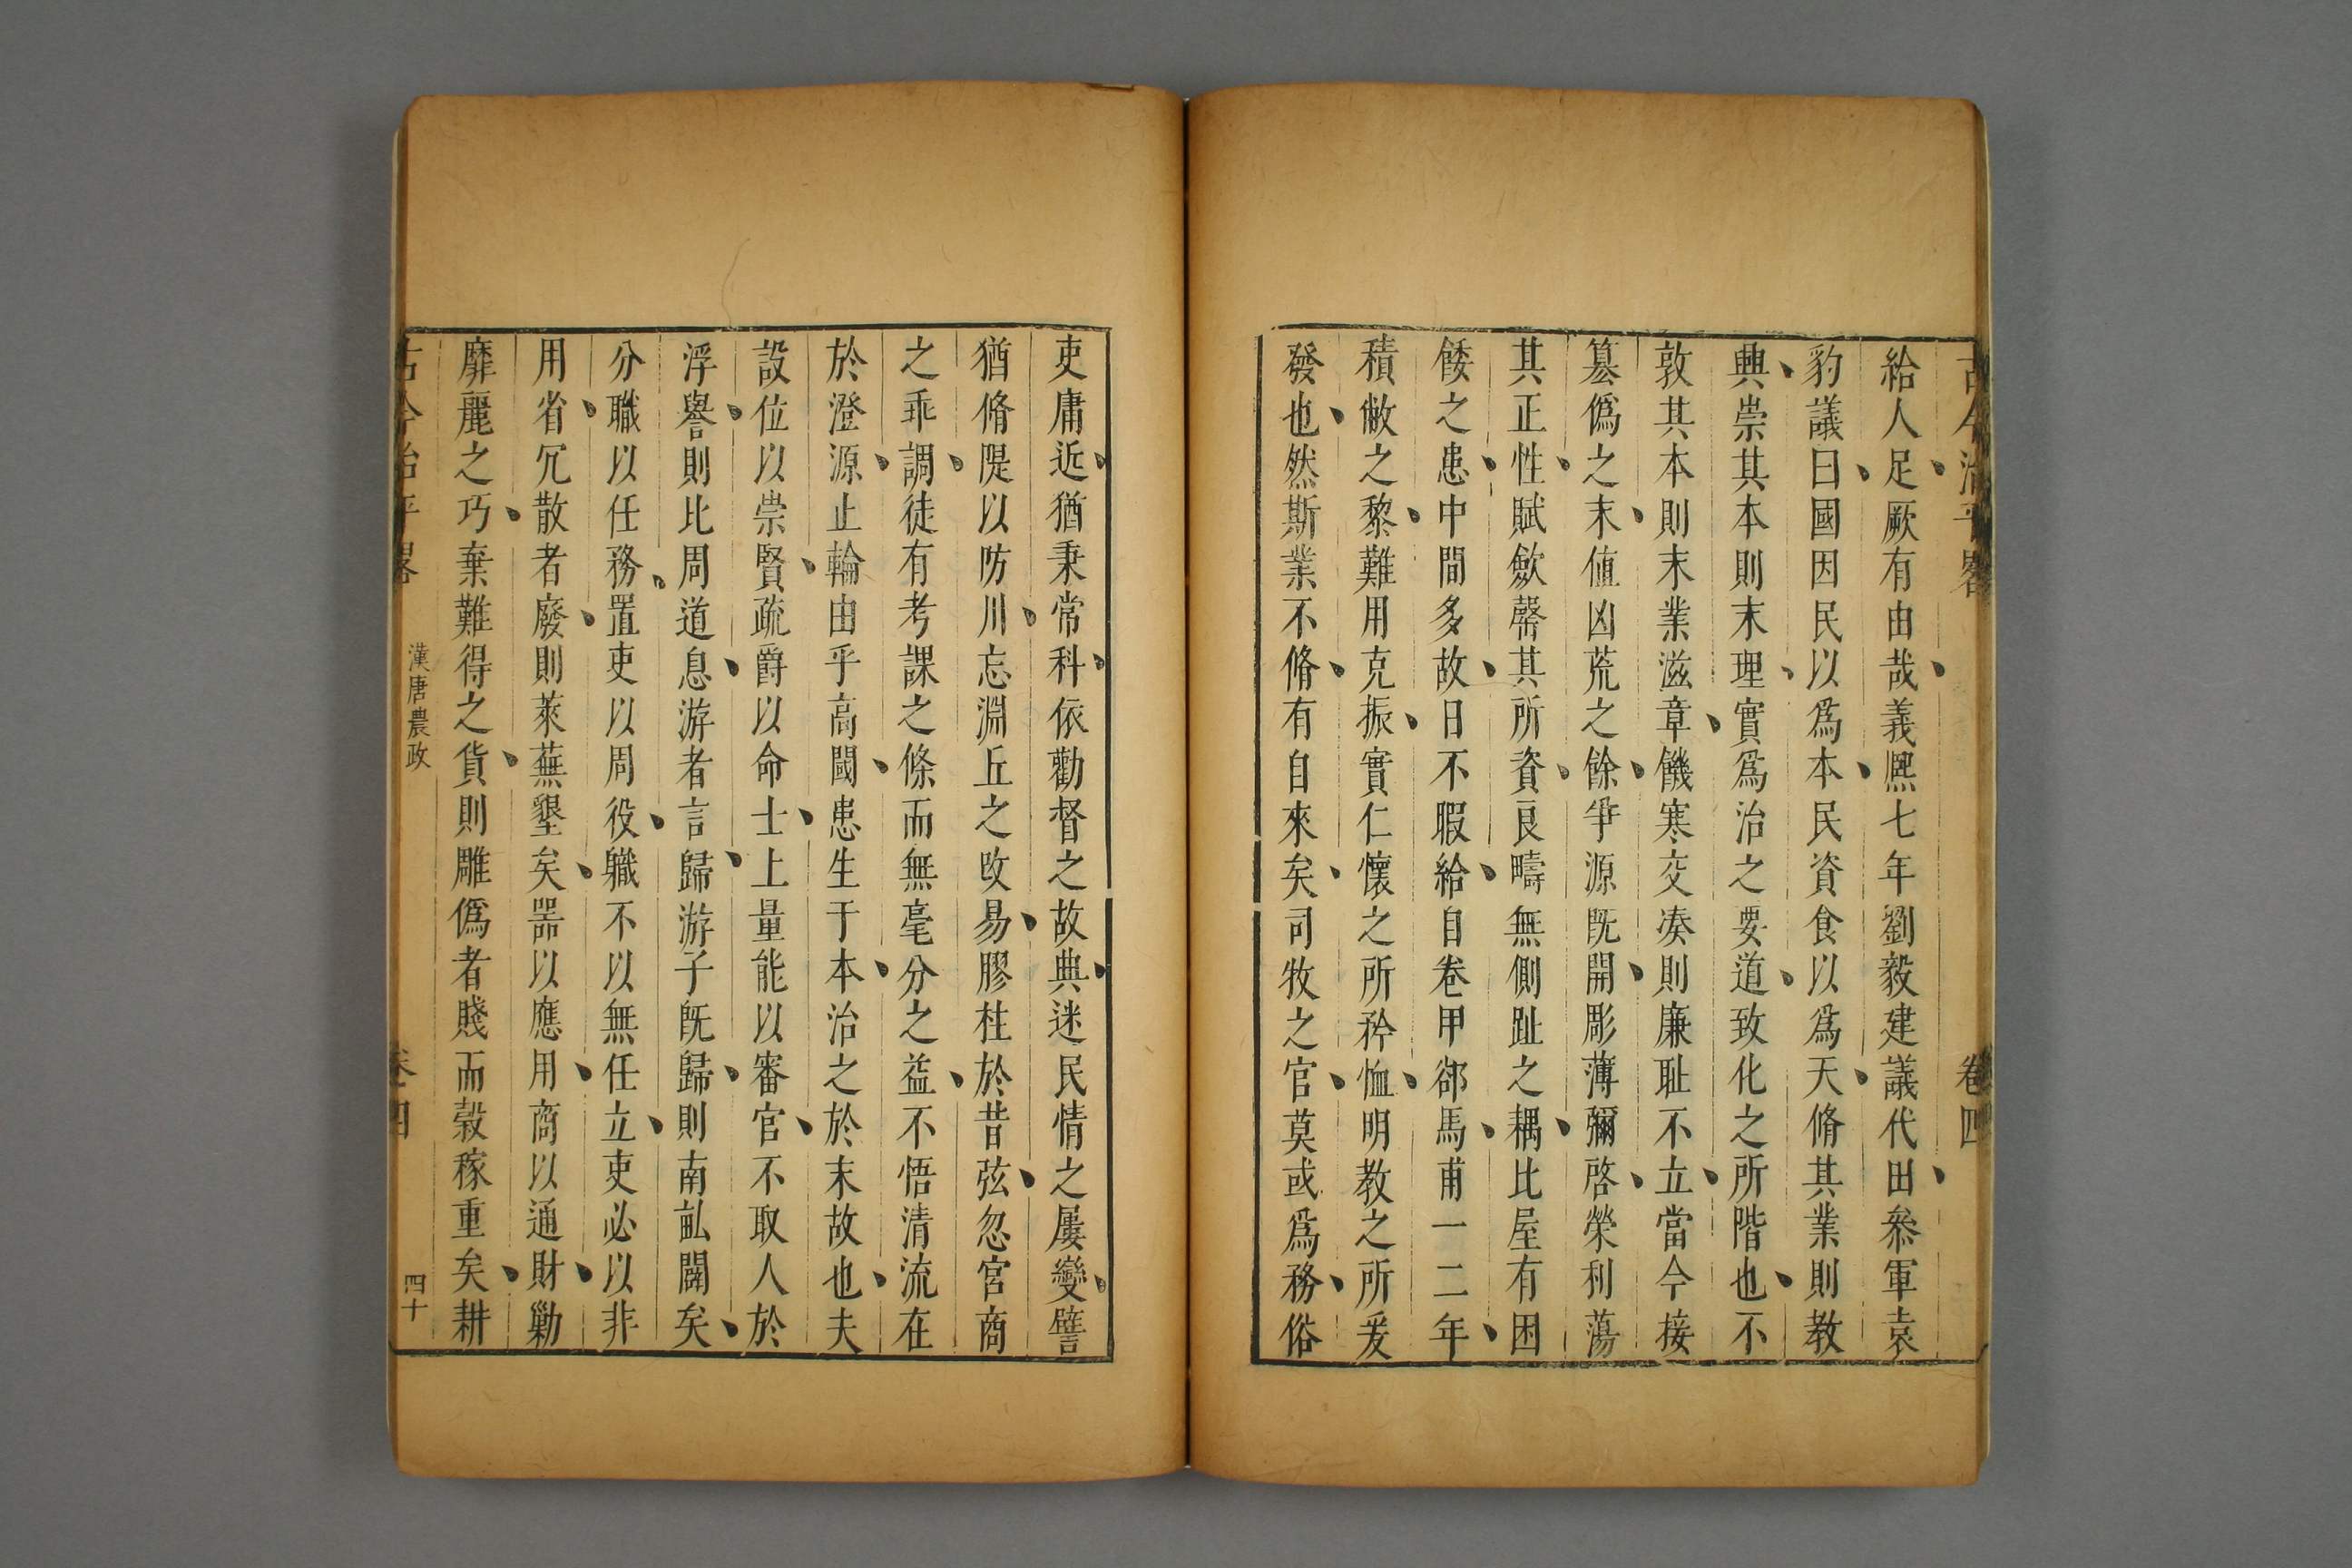 古今治平畧 卷四
給人足厥有由哉義熈七年劉毅建議代田叅軍袁
豹議曰國因民以爲本民資食以爲天脩其業則教
興崇其本則末理實爲治之要道致化之所階也不
敦其本則末業滋章饑寒交凑則廉耻不立當今接
簒僞之末値凶荒之餘爭源旣開彫薄彌啓榮利蕩
其正性賦歛罄其所資良疇無側趾之耦比屋有困
餧之患中間多故日不暇給自卷甲郤馬甫一二年
積敝之黎難用克振實仁懷之所矜恤明教之所爰
發也然斯業不脩有自來矣司牧之官莫或爲務俗
吏庸近猶秉常科依勸督之故典迷民情之屢變譬
猶脩隄以防川忘淵丘之改易膠柱於昔弦忽宮商
之乖調徒有考課之條而無毫分之益不悟清流在
於澄源止輪由乎高閾患生于本治之於末故也夫
設位以崇賢疏爵以命士上量能以審官不取人於
浮譽則比周道息游者言歸游子旣歸則南畝闢矣
分職以任務置吏以周役職不以無任立吏必以非
用省冗散者廢則萊蕪墾矣器以應用商以通財勦
靡麗之巧棄難得之貨則雕僞者賤而糓稼重矣耕
古今治平畧 漢唐農政 卷四 四十